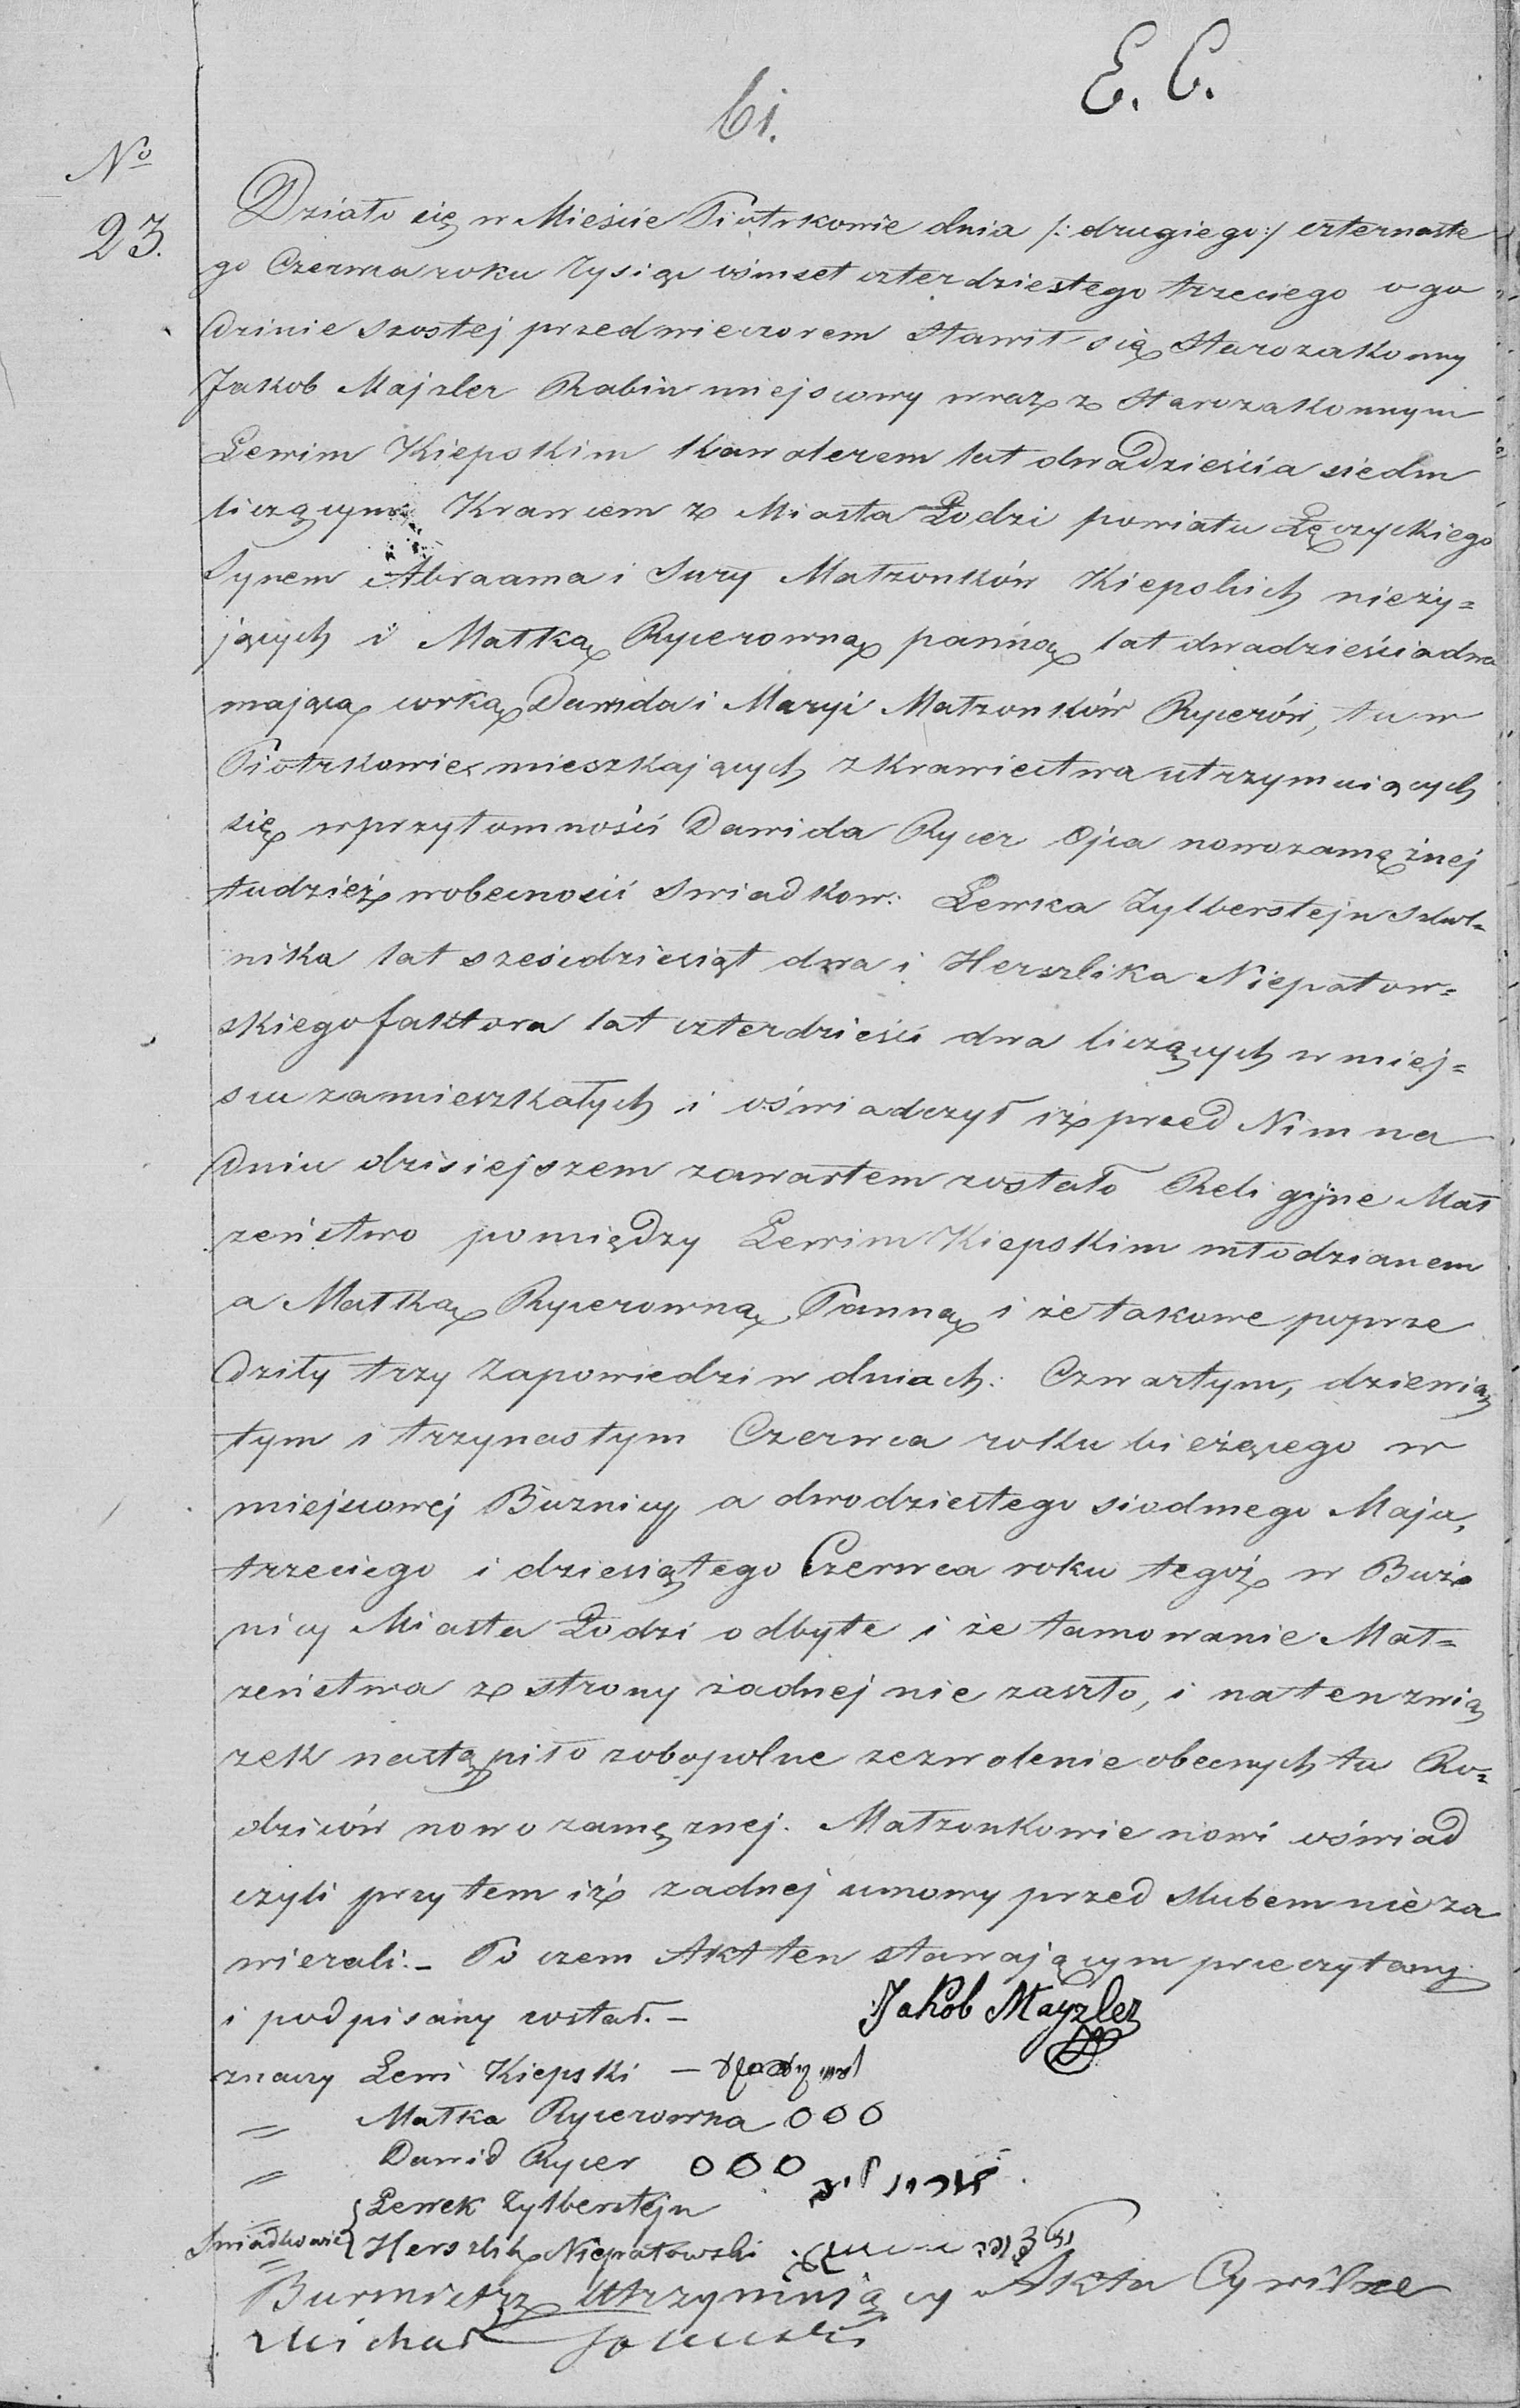 E. C.
61.
No
23.
Działo się w Mieście Piotrkowie dnia /: drugiego :/ czternaste
go Czerwca roku Tysiąc ośmset czterdziestego trzeciego o go
dzinie szostej przed wieczorem stawił się Starozakonny
Jakob Majzler Rabin miejscowy wraz z Starozakonnym
Lewim Kiepskim kawalerem lat dwadzieścia siedm
liczącym Krawcem z Miasta Łodzi powiatu Łęczyckiego
Synem Abraama i Sury Małzonków Kiepskich nieży=
jących i Małką Rycerowną panną lat dwadzieścia dwa
mającą corką Dawida i Maryi Małzonków Rycerów, tu w
Piotrkowie mieszkających z krawiectwa utrzymuiących
się w przytomności Dawida Rycer Ojca nowozamężnej
tudzież w obecności Swiadkow: Lewka Zylbersztejn Szkol=
nika lat sześcdziesiąt dwa i Herszlika Niepatow=
skiego faktora lat czterdzieści dwa liczących w miej=
scu zamieszkałych i oświadczył iż przed Nim na
dniu dzisiejszem zawartem zostało Religijne Mał
żeństwo pomiędzy Lewim Kiepskim młodzianem
a Małką Rycerowną Panną i że takowe poprze
dziły trzy Zapowiedzi w dniach: Czwartym, dziewią
tym i trzynastym Czerwca roku bieżącego w
miejscowej Buznicy a dwodziestego siodmego Maja,
trzeciego i dziesiątego Czerwca roku tegoż w Buż
nicy Miasta Łodzi odbyte i że tamowanie Mał=
żeństwa z strony żadnej nie zaszło, i na ten zwią
zek nastąpiło zobopolne zezwolenie obecnych tu Ro=
dziców nowo zamęznej. Małzonkowie nowi oświad
czyli przytem iż zadnej umowy przed slubem nie za
wierali. – Po czem Akt ten stawającym przeczytany
i podpisany został. –
Jakob Mayzler
znaczy Lewi Kiepski –
" Małka Rycerowna OOO
" Dawid Rycer OOO
" Lewek Zylbersztejn
Swiadkowie { " Herszlik Niepatowski
Burmistrz Utrzymuiący Akta Cywilne
Michał